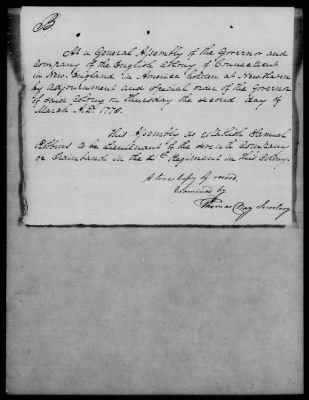 B.
At a General Assembly of the Governor and
Company of the English Colony of Connecticut
in New England in America holden at New Haven
by adjournment and special order of the Governor
of said Colony on Thursday the second day of
March A.D. 1775.
This Assembly do establish Samuel
Robbins to be Lieutenant of the seventh Company
or Trainband in the Regiment in this Colony.
A true Copy of record,
Examined by
Thomas Day Secretary